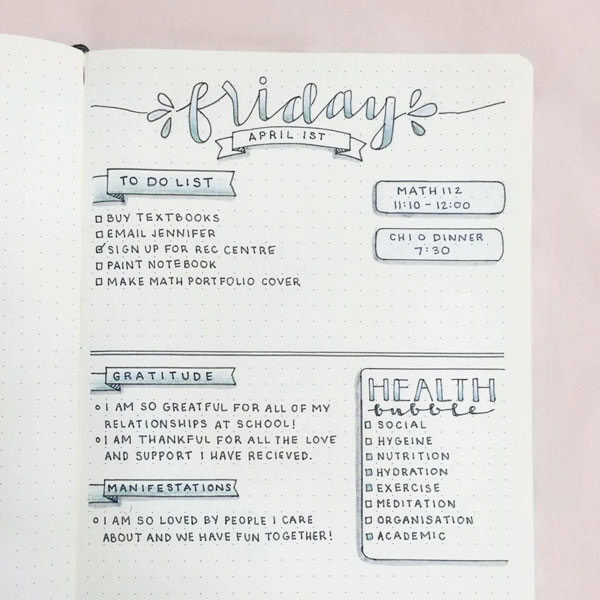 friday
APRIL 1ST
TO DO LIST
BUY TEXTBOOKS
EMAIL JENNIFER
SIGN UP FOR REC CENTRE
PAINT NOTEBOOK
MAKE MATH PORTFOLIO COVER
MATH 112
11:10 - 12:00
CHI O DINNER
7:30
GRATITUDE
I AM SO GREATFUL FOR ALL OF MY
RELATIONSHIPS AT SCHOOL!
I AM THANKFUL FOR ALL THE LOVE
AND SUPPORT I HAVE RECIEVED.
MANIFESTATIONS
I AM SO LOVED BY PEOPLE I CARE
ABOUT AND WE HAVE FUN TOGETHER!
HEALTH
bubble
SOCIAL
HYGEINE
NUTRITION
HYDRATION
EXERCISE
MEDITATION
ORGANISATION
ACADEMIC